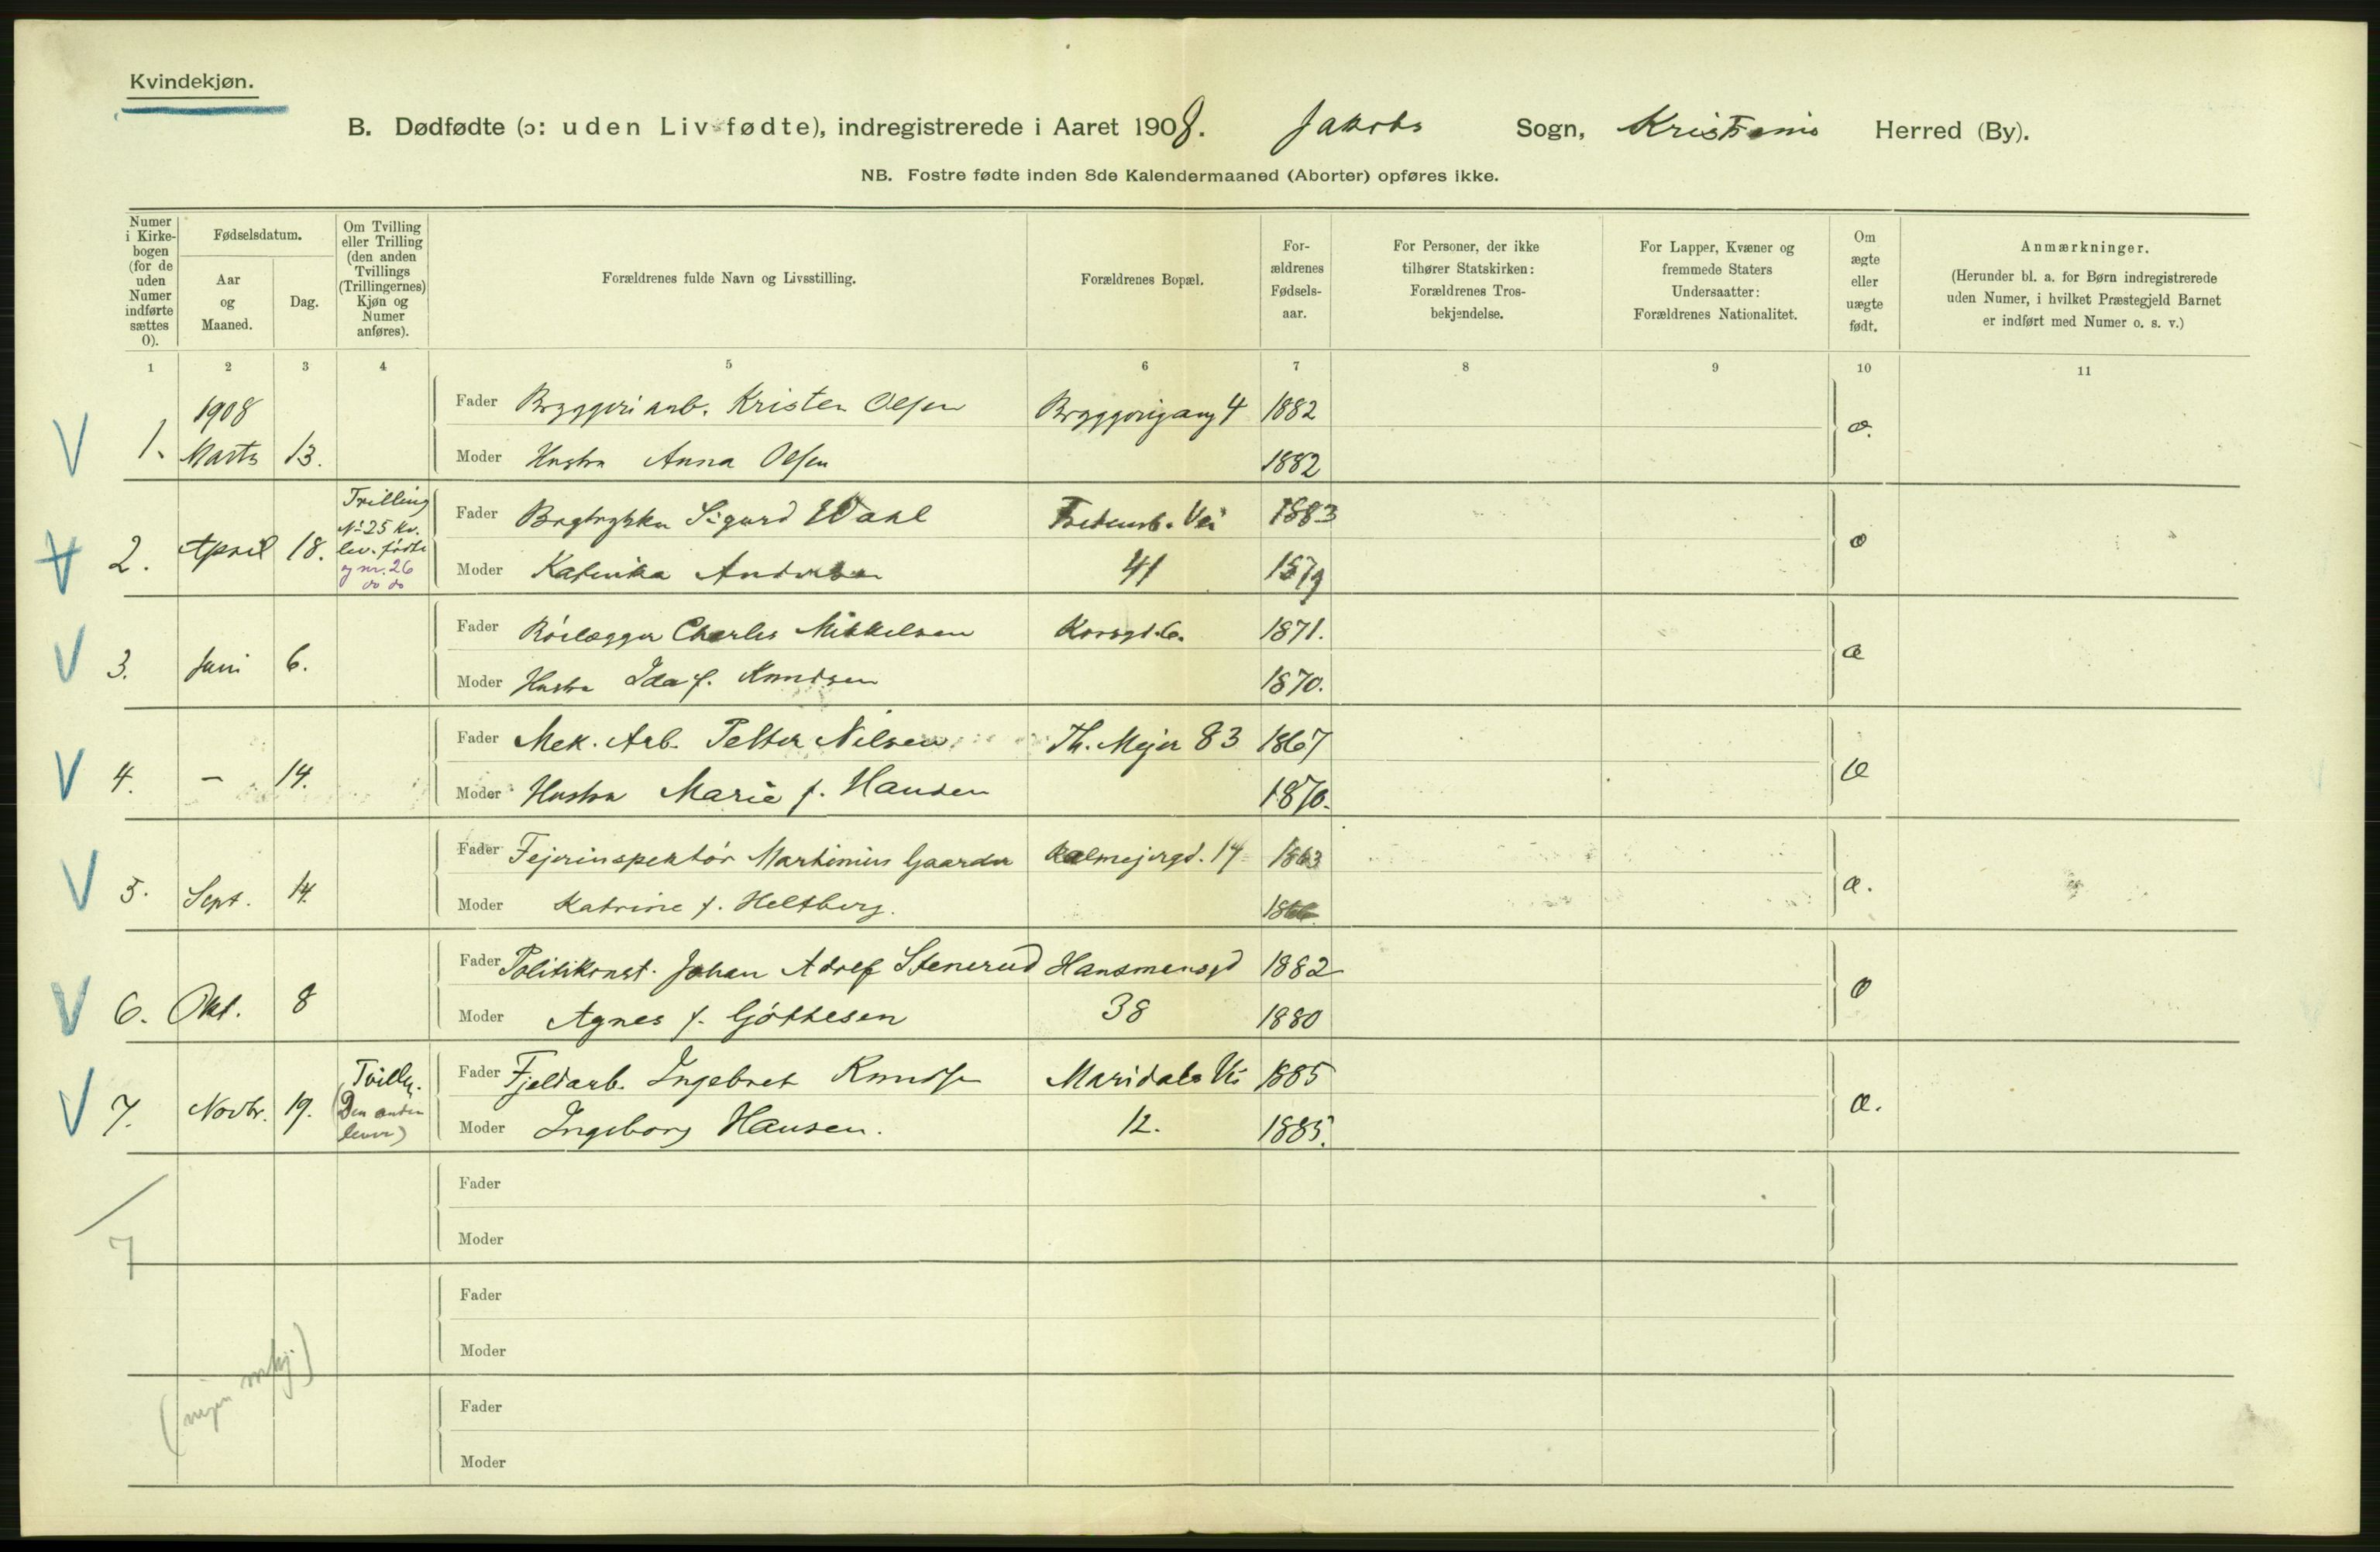 Kvindekjøn.
B. Dødfødte (ɔ: uden Liv fødte), indregistrerede i Aaret 1908. Jakobs Sogn, Kristiania Herred (By).
NB. Fostre fødte inden 8de Kalendermaaned (Aborter) opføres ikke.
Numer i Kirke-bogen (for de uden Numer indførte sættes 0).
Fødselsdatum.
Aar og Maaned.
Dag.
Om Tvilling eller Trilling (den anden Tvillings (Trillingernes) Kjøn og Numer anføres).
Forældrenes fulde Navn og Livsstilling.
Forældrenes Bopæl.
For-ældrenes Fødsels-aar.
For Personer, der ikke tilhører Statskirken: Forældrenes Tros-bekjendelse.
For Lapper, Kvæner og fremmede Staters Undersaatter: Forældrenes Nationalitet.
Om ægte eller uægte født.
Anmærkninger.
(Herunder bl. a. for Børn indregistrerede uden Numer, i hvilket Præstegjeld Barnet er indført med Numer o. s. v.)
1 2 3 4 5 6 7 8 9 10 11
1908
Fader Bryggeriarb. Kristen Olsen Bryggerigang 4 1882
1. Marts 13.
Moder Hustru Anna Olsen 1882
Trilling
No 25 kv.
lev. født
og nr. 26
do do
Fader Sigurd Wahl Vei 1883
2. April 18.
Moder Katinka Andersen 41 1879
Fader Rørlægger Charles Mikkelsen Korsgd. 6. 1871.
3. Juni 6. æ
Moder Hustru Ida f. Knudsen 1870.
Fader Mek. Arb. Petter Nilsen Th. Mejer 83 1867
4. — 14. æ
Moder Hustru Marie f. Hansen 1870.
Fader Fejerinspektør Martinius Gaarder Calmejergd. 14 1863
5. Sept. 14. æ.
Moder Katrine f. Heltberg.
Fader Politikonst. Johan Adolf Stenerud Hausmansgd 1882
6. Okt. 8
Moder Agnes f. Gøttesen 38 1880
Tvilling.
(Den anden
lever)
Fader Fjeldarb. Ingebret Knudsen Maridals Vei 1885
7. Novbr. 19. æ.
Moder Ingeborg Hansen. 12. 1885.
Fader
Moder
7
Fader
Moder
Fader
Moder